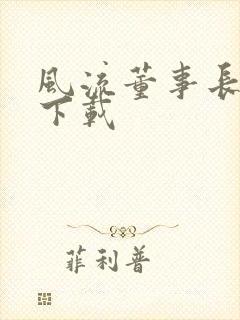 風流董事長
下載
菲利普